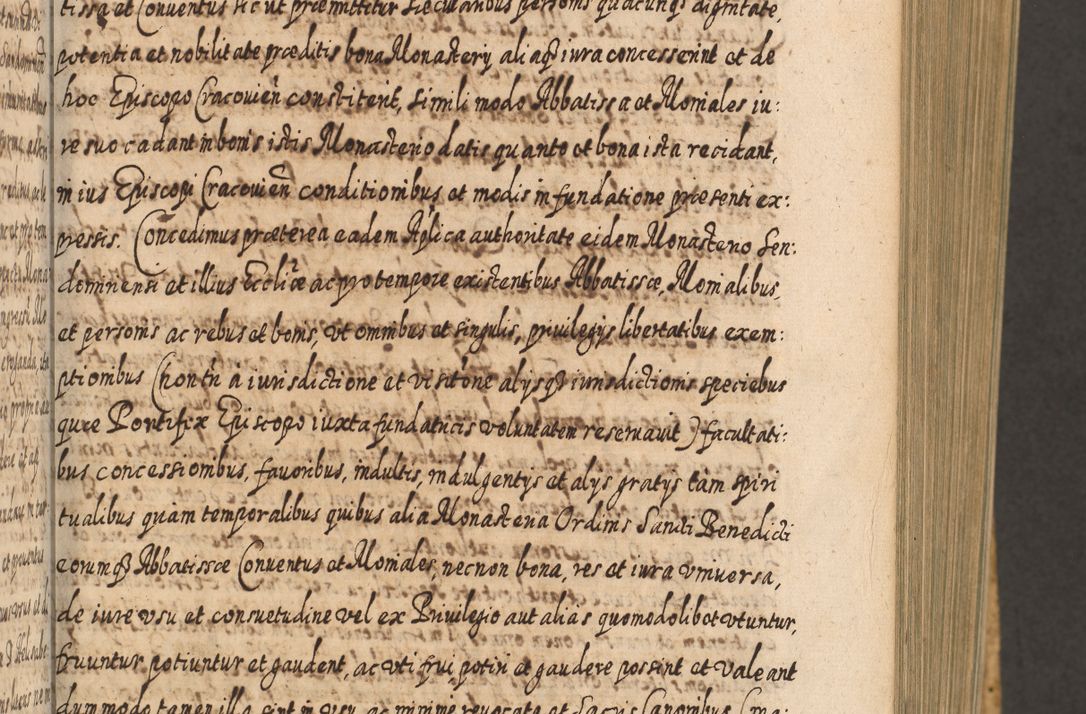 tissa et Conuentus sic ut præmittitur sæcularibus personis quacunq dignitate,
potentia et nobilitate præditis bona Monastery aliaq iura concesserint et de
hoc Episcopo Cracovień constiterit, simili modo Abbatissa et Moniales iu:
re suo cadant in bonis istis Monasterio datis quanto et bona ista recidant,
in ius Episcopi Cracovień conditionibus et modis in fundatione præsenti ex:
pressis. Concedimus præterea eadem Aplica authoritate eidem Monasterio Sen:
dominensi et illius Ecclice ac pro tempore existentibus Abbatissæ, Monialibus,
et personis ac rebus et bonis, vt omnibus et singulis, privilegys libertatibus exem:
ptionibus (non tn a iurisdictione et visitone alysq iurisdictionis speciebus
quæ Pontifex Episcopo iuxta fundatricis voluntatem reseruauit) facultati:
bus concessionibus, fauoribus, indultis, indulgentys et alys gratys tam spiri
tualibus quam temporalibus quibus alia Monasteria Ordinis Sancti Benedicti
eorumq Abbatissæ Conuentus et Moniales, necnon bona, res et iura vniuersa,
de iure vsu et consuetudine vel ex Priuilegio aut alias quomodolibet vtuntur,
fruuntur potiuntur et gaudent, ac vti frui, potiri et gaudere possint et valeant
dummodo tamen illa sint in vsu, ac minime reuocata et Sacris Canonibus